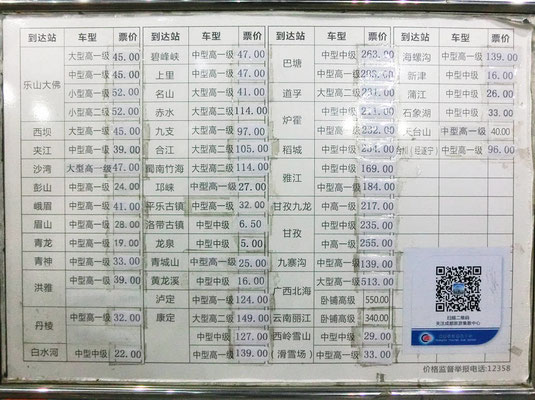 到达站 车型 票价 到达站 车型 票价 到达站 车型 票价 到达站 车型 票价
乐山大佛 大型高一级 45.00 碧峰峡 中型高一级 47.00 巴塘 中型中级 263.00 海螺沟 中型高一级 139.00
中型高一级 45.00 上里 中型高一级 47.00 中型高一级 新津 中型中级 16.00
小型高一级 52.00 名山 大型高一级 41.00 道孚 大型高二级 蒲江 中型中级 26.00
小型高二级 52.00 赤水 大型高二级 114.00 炉霍 中型中级 石象湖 中型中级 33.00
西坝 大型高一级 45.00 九支 大型高一级 97.00 中型高一级 232.00 天台山 中型高一级 40.00
夹江 中型高一级 39.00 合江 大型高二级 105.00 稻城 中型高一级 254.00 (经遂宁) 中型高一级 96.00
沙湾 大型高一级 47.00 蜀南竹海 大型高二级 114.00 雅江 中型中级 169.00
彭山 中型高一级 24.00 邛崃 中型高一级 27.00 中型高一级 184.00
峨眉 中型高一级 41.00 平乐古镇 中型高一级 32.00 甘孜九龙 中型高一级 217.00
眉山 中型高一级 28.00 洛带古镇 中型中级 6.50 甘孜 中型中级 235.00
青龙 中型高一级 19.00 龙泉 中型中级 5.00 中型高一级 255.00
青神 中型高一级 33.00 青城山 中型高一级 25.00 九寨沟 中型高一级 139.00
洪雅 中型高一级 39.00 黄龙溪 中型中级 16.00 广西北海 大型高一级 513.00
泸定 中型高一级 124.00 卧铺高级 550.00
丹棱 中型高一级 32.00 康定 大型高二级 149.00 云南丽江 卧铺高级 340.00
中型中级 127.00 西岭雪山 中型中级 29.00
白水河 中型中级 22.00 中型高一级 139.00 (滑雪场) 中型高一级 33.00
扫描二维码
关注成都旅游集散中心
价格监督举报电话:12358